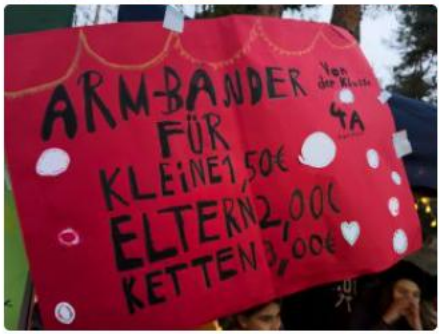 ARMBANDER
Von
der Klasse
4A
FÜR
KLEINE 1,50€
ELTERN 2,00€
KETTEN 3,00€